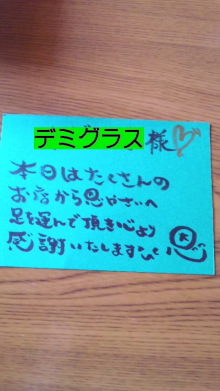 デミグラス様
本日はたくさんの
お店から恩やさいへ
足を運んで頂き心より
感謝いたします
恩